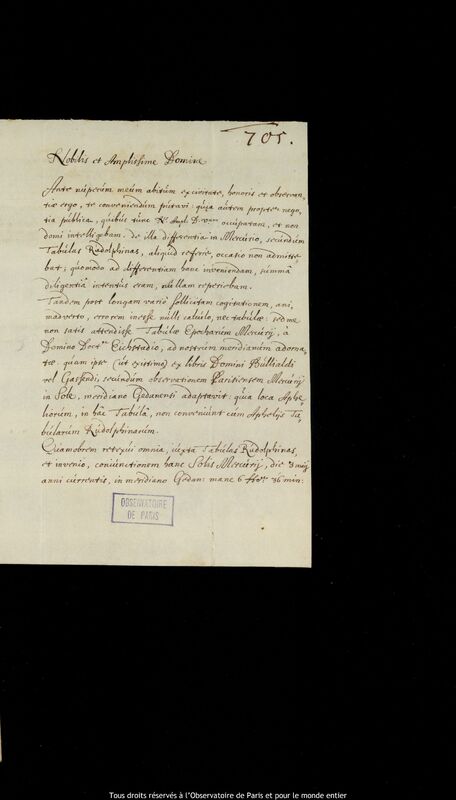 705.
Nobilis et Amplissime Domine
Ante nuperum meum abitum ex civitate, honoris et observan-
tiæ ergo, te conveniendum putavi: quia autem propter nego,
tia publica, quibus tunc Ampl. D. vram occupatam, et non
domi intelligebam, de illa differentia in Mercurio, secundum
Tabulas Rudolphinas, aliquid referre, occasio non admitte,
bat; quomodo ad differentiam hanc inveniendam, summâ
diligentiâ intentus eram, nullam reperiebam.
Tandem post longam variò sollicitam cogitationem, ani,
madverto, errorem inesse nulli calculo, nec tabulæ: sed me
non satis attendisse Tabulæ Epocharum Mercurij, à
Domino Doct. Eichstadio, ad nostrum meridianum adorna-
tæ: quam ipse (ut existimo) ex libris Domini Bullialdi
vel Gassendi, secundum observationem Parisiensem Mercurij
in Sole, meridiano Gedanensi adaptavit: quia loca Aphe-
liorum, in hac Tabula, non conveniunt cum Aphelijs Ta,
bularum Rudolphinarum.
Quamobrem retexui omnia, iuxta Tabulas Rudolphinas,
et invenio, coniunctionem hanc Solis Mercurij, die 3 maij
anni currentis, in meridiano Gedan: mane 6 hor. 36 min:
OBSERVATOIRE
DE PARIS
Tous droits réservés à l'Observatoire de Paris et pour le monde entier